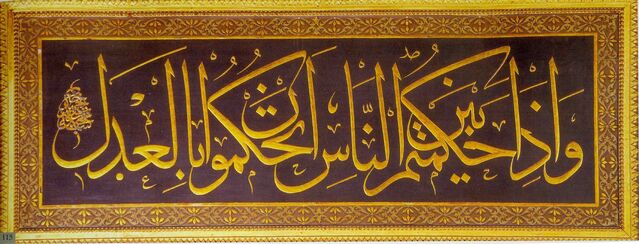 وَإِذَا حَكَمْتُمْ بَيْنَ النَّاسِ أَنْ تَحْكُمُوا بِالْعَدْلِ
115